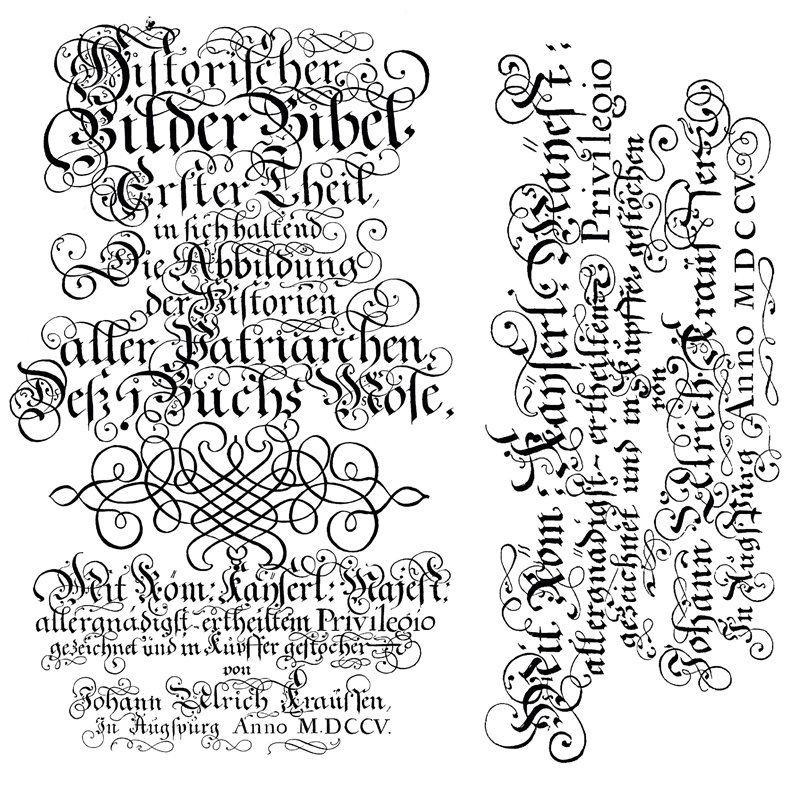 Historischer
Bilder Bibel,
Erster Theil,
in sich haltend
Die Abbildung
der Historien
aller Patriarchen,
Deß 1 Buchs Mose,
Mit Röm: Kaÿserl: Majest:
allergnädigst-ertheiltem Privilegio
gezeichnet und in Kupffer gestochen
von
Johann Ulrich Kraussen,
In Augspurg Anno M.DCCV.
Mit Röm: Kaÿserl: Majest:
allergnädigst-ertheiltem Privilegio
gezeichnet und in Kupffer gestochen
von
Johann Ulrich Kraussen
In Augspurg Anno MDCCV.